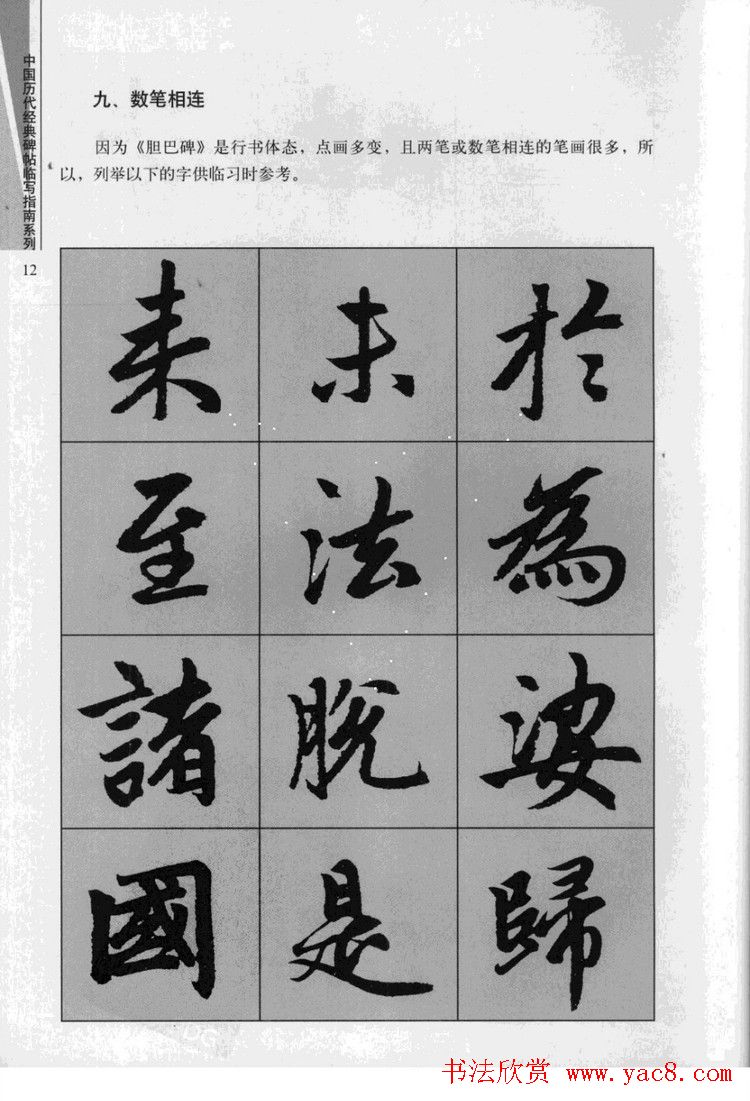 中国历代经典碑帖临写指南系列
12
九、数笔相连
因为《胆巴碑》是行书体态，点画多变，且两笔或数笔相连的笔画很多，所
以，列举以下的字供临习时参考。
来未於
至法為
諸脱娑
國是歸
书法欣赏 www.yac8.com